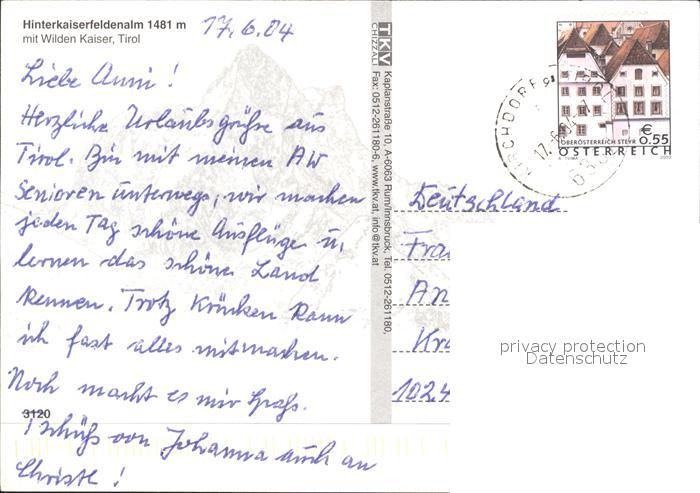 Hinterkaiserfeldenalm 1481 m
mit Wilden Kaiser, Tirol
17.6.04
Liebe Anni!
Herzliche Urlaubsgrüße aus
Tirol. Bin mit meinen AW
Senioren unterwegs, wir machen
jeden Tag schöne Ausflüge u.
lernen das schöne Land
kennen. Trotz Krücken kann
ich fast alles mitmachen.
Noch macht es mir Spaß.
3120
Tschüß von Johanna auch an
Christl!
TKV
CHIZZALI
Kaplanstraße 10, A-6063 Rum/Innsbruck, Tel. 0512-261180,
Fax: 0512-261180-6, www.tkv.at, info@tkv.at
KIRCHDORF
17.6.
OBERÖSTERREICH STEYR
€ 0.55
ÖSTERREICH
Deutschland
Fra
An
Kra
1024
privacy protection
Datenschutz